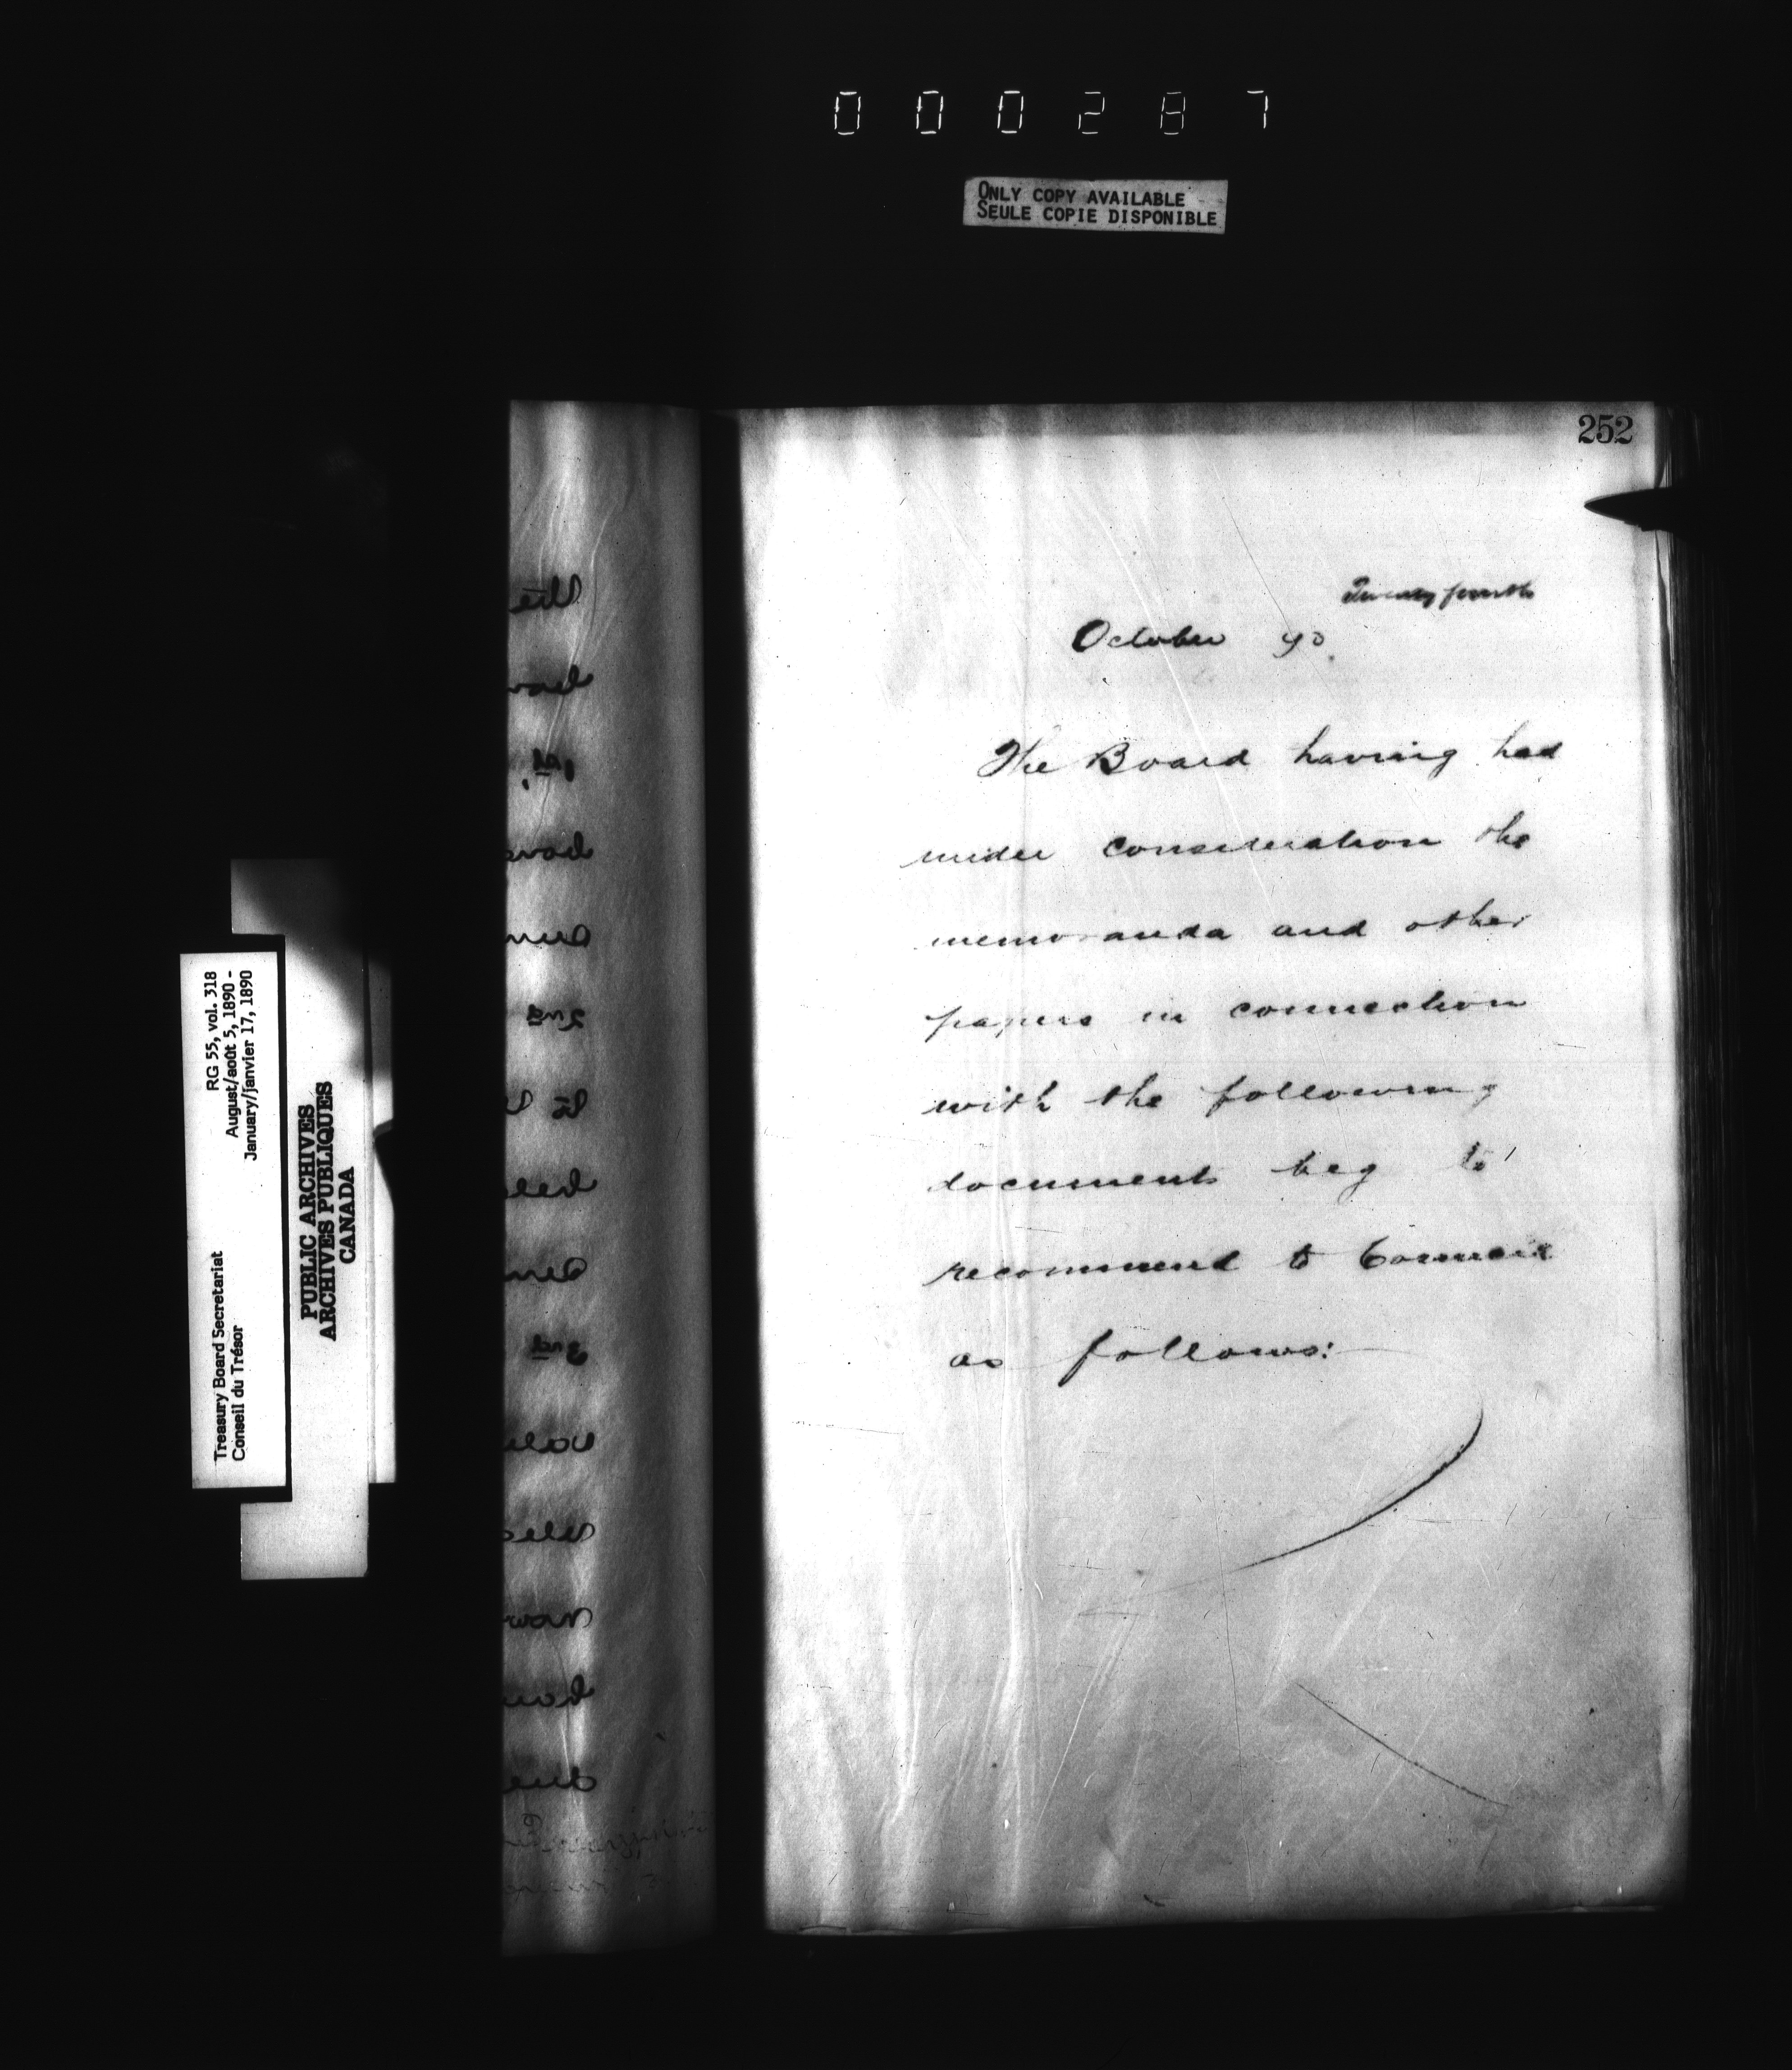 000287
ONLY COPY AVAILABLE
SEULE COPIE DISPONIBLE
252
Twenty fourth
October 90
The Board having had
under consideration the
memoranda and other
papers in connection
with the following
documents beg to
recommend to Council
as follows:
RG 55, vol. 318
August/août 5, 1890 -
January/janvier 17, 1890
Treasury Board Secretariat
Conseil du Trésor
PUBLIC ARCHIVES
ARCHIVES PUBLIQUES
CANADA